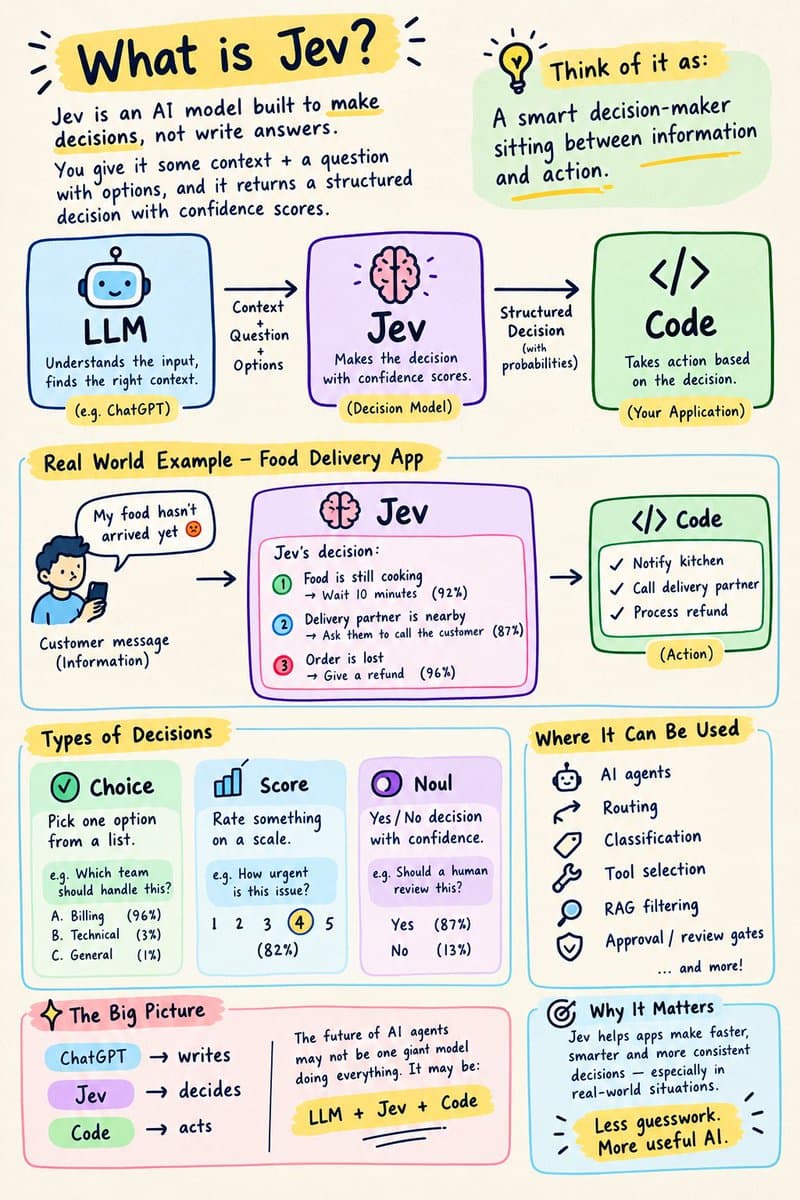 What is Jev?
Jev is an AI model built to make
decisions, not write answers.
You give it some context + a question
with options, and it returns a structured
decision with confidence scores.
Think of it as:
A smart decision-maker
sitting between information
and action.
LLM
Understands the input,
finds the right context.
(e.g. ChatGPT)
Context
+
Question
+
Options
Jev
Makes the decision
with confidence scores.
(Decision Model)
Structured
Decision
(with
probabilities)
</>
Code
Takes action based
on the decision.
(Your Application)
Real World Example – Food Delivery App
My food hasn't
arrived yet 😡
Customer message
(Information)
Jev
Jev's decision:
1 Food is still cooking
→ Wait 10 minutes (92%)
2 Delivery partner is nearby
→ Ask them to call the customer (87%)
3 Order is lost
→ Give a refund (96%)
</> Code
✓ Notify kitchen
✓ Call delivery partner
✓ Process refund
(Action)
Types of Decisions
Choice
Pick one option
from a list.
e.g. Which team
should handle this?
A. Billing (96%)
B. Technical (3%)
C. General (1%)
Score
Rate something
on a scale.
e.g. How urgent
is this issue?
1 2 3 4 5
(82%)
Noul
Yes / No decision
with confidence.
e.g. Should a human
review this?
Yes (87%)
No (13%)
Where It Can Be Used
AI agents
Routing
Classification
Tool selection
RAG filtering
Approval / review gates
... and more!
The Big Picture
ChatGPT → writes
Jev → decides
Code → acts
The future of AI agents
may not be one giant model
doing everything. It may be:
LLM + Jev + Code
Why It Matters
Jev helps apps make faster,
smarter and more consistent
decisions — especially in
real-world situations.
Less guesswork.
More useful AI.